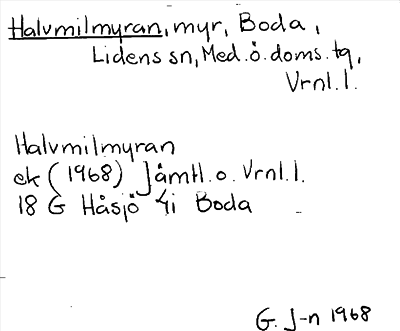 Halvmilmyran, myr, Boda,
Lidens sn, Med. ö. doms. tg,
Vrnl. l.
Halvmilmyran
ek (1968) Jämtl. o. Vrnl. l.
18 G Håsjö 4i Boda
G. J-n 1968